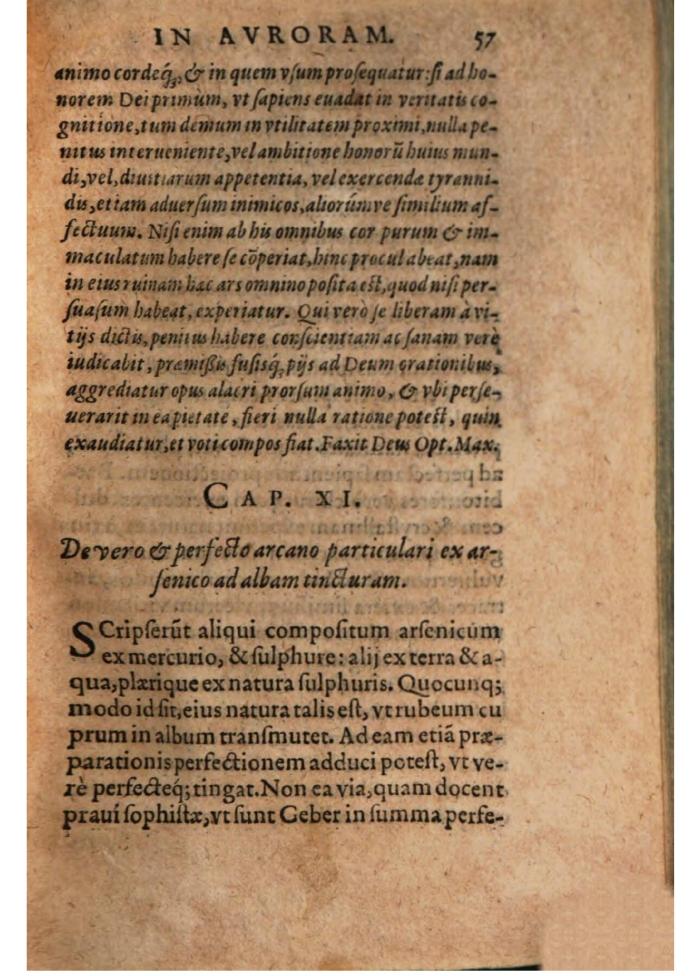 IN AVRORAM. 57
animo cordeq́ꝫ, & in quem vſum proſequatur: ſi ad ho-
norem Dei primùm, vt ſapiens euadat in veritatis co-
gnitione, tum demum in vtilitatem proximi, nulla pe-
nitus interueniente, vel ambitione honorū huius mun-
di, vel, diuitiarum appetentia, vel exercendæ tyranni-
dis, etiam aduerſum inimicos, aliorúmve ſimilium af-
fectuum. Niſi enim ab his omnibus cor purum & im-
maculatum habere ſe cōperiat, hinc procul abeat, nam
in eius ruinam hæc ars omnino poſita eſt, quod niſi per-
ſuaſum habeat, experiatur. Qui verò ſe liberam à vi-
tijs dictis, penitus habere conſcientiam ac ſanam verè
iudicabit, præmiſſis fuſisq́, pijs ad Deum orationibus,
aggrediatur opus alacri prorſum animo, & vbi perſe-
uerarit in ea pietate, fieri nulla ratione poteſt, quin
exaudiatur, et voti compos fiat. Faxit Deus Opt. Max.
CAP. XI.
De vero & perfecto arcano particulari ex ar-
ſenico ad albam tincturam.
SCripſerūt aliqui compoſitum arſenicum
ex mercurio, & ſulphure: alij ex terra & a-
qua, plærique ex natura ſulphuris. Quocunq;
modo id ſit, eius natura talis eſt, vt rubeum cu
prum in album tranſmutet. Ad eam etiã præ-
parationis perfectionem adduci poteſt, vt ve-
rè perfecteq; tingat. Non ea via, quam docent
praui ſophiſtæ, vt ſunt Geber in ſumma perfe-